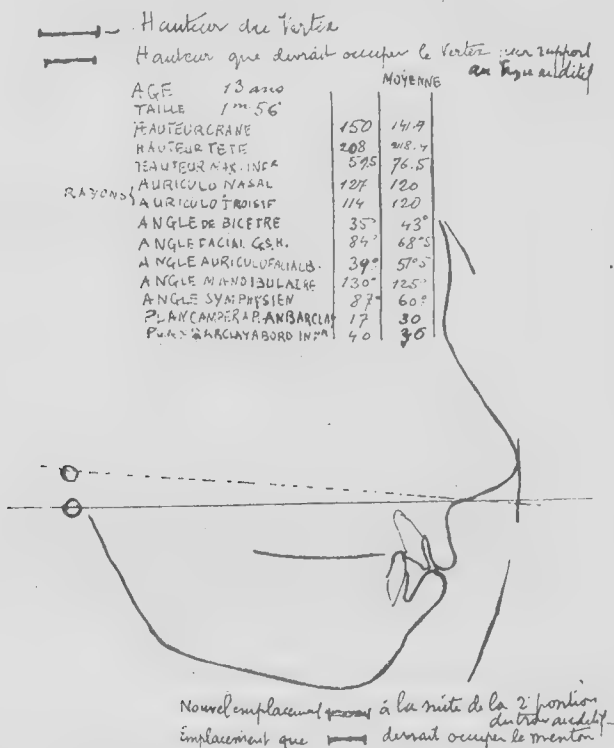 Hauteur du Vertex
Hauteur que devrait occuper le Vertex par rapport
au Trou auditif
MOYENNE
AGE 13 ans
TAILLE 1m.56
HAUTEUR CRANE 150 141.9
HAUTEUR TETE 208 218.4
HAUTEUR MAX. INFR 59.5 76.5
RAYONS
AURICULO NASAL 127 120
AURICULO INOISIF 114 120
ANGLE DE BICETRE 35° 43°
ANGLE FACIAL G.S.H. 84° 68°5
ANGLE AURICULOFACIALB. 39° 57°5
ANGLE MANDIBULAIRE 130° 125°
ANGLE SYMPHYSIEN 87° 60°
PLAN CAMPER A P. AN BARCLAY 17 30
BARCLAY A BORD INFR 40 36
Nouvel emplacement à la suite de la 2e position
du trou auditif
Emplacement que devrait occuper le menton